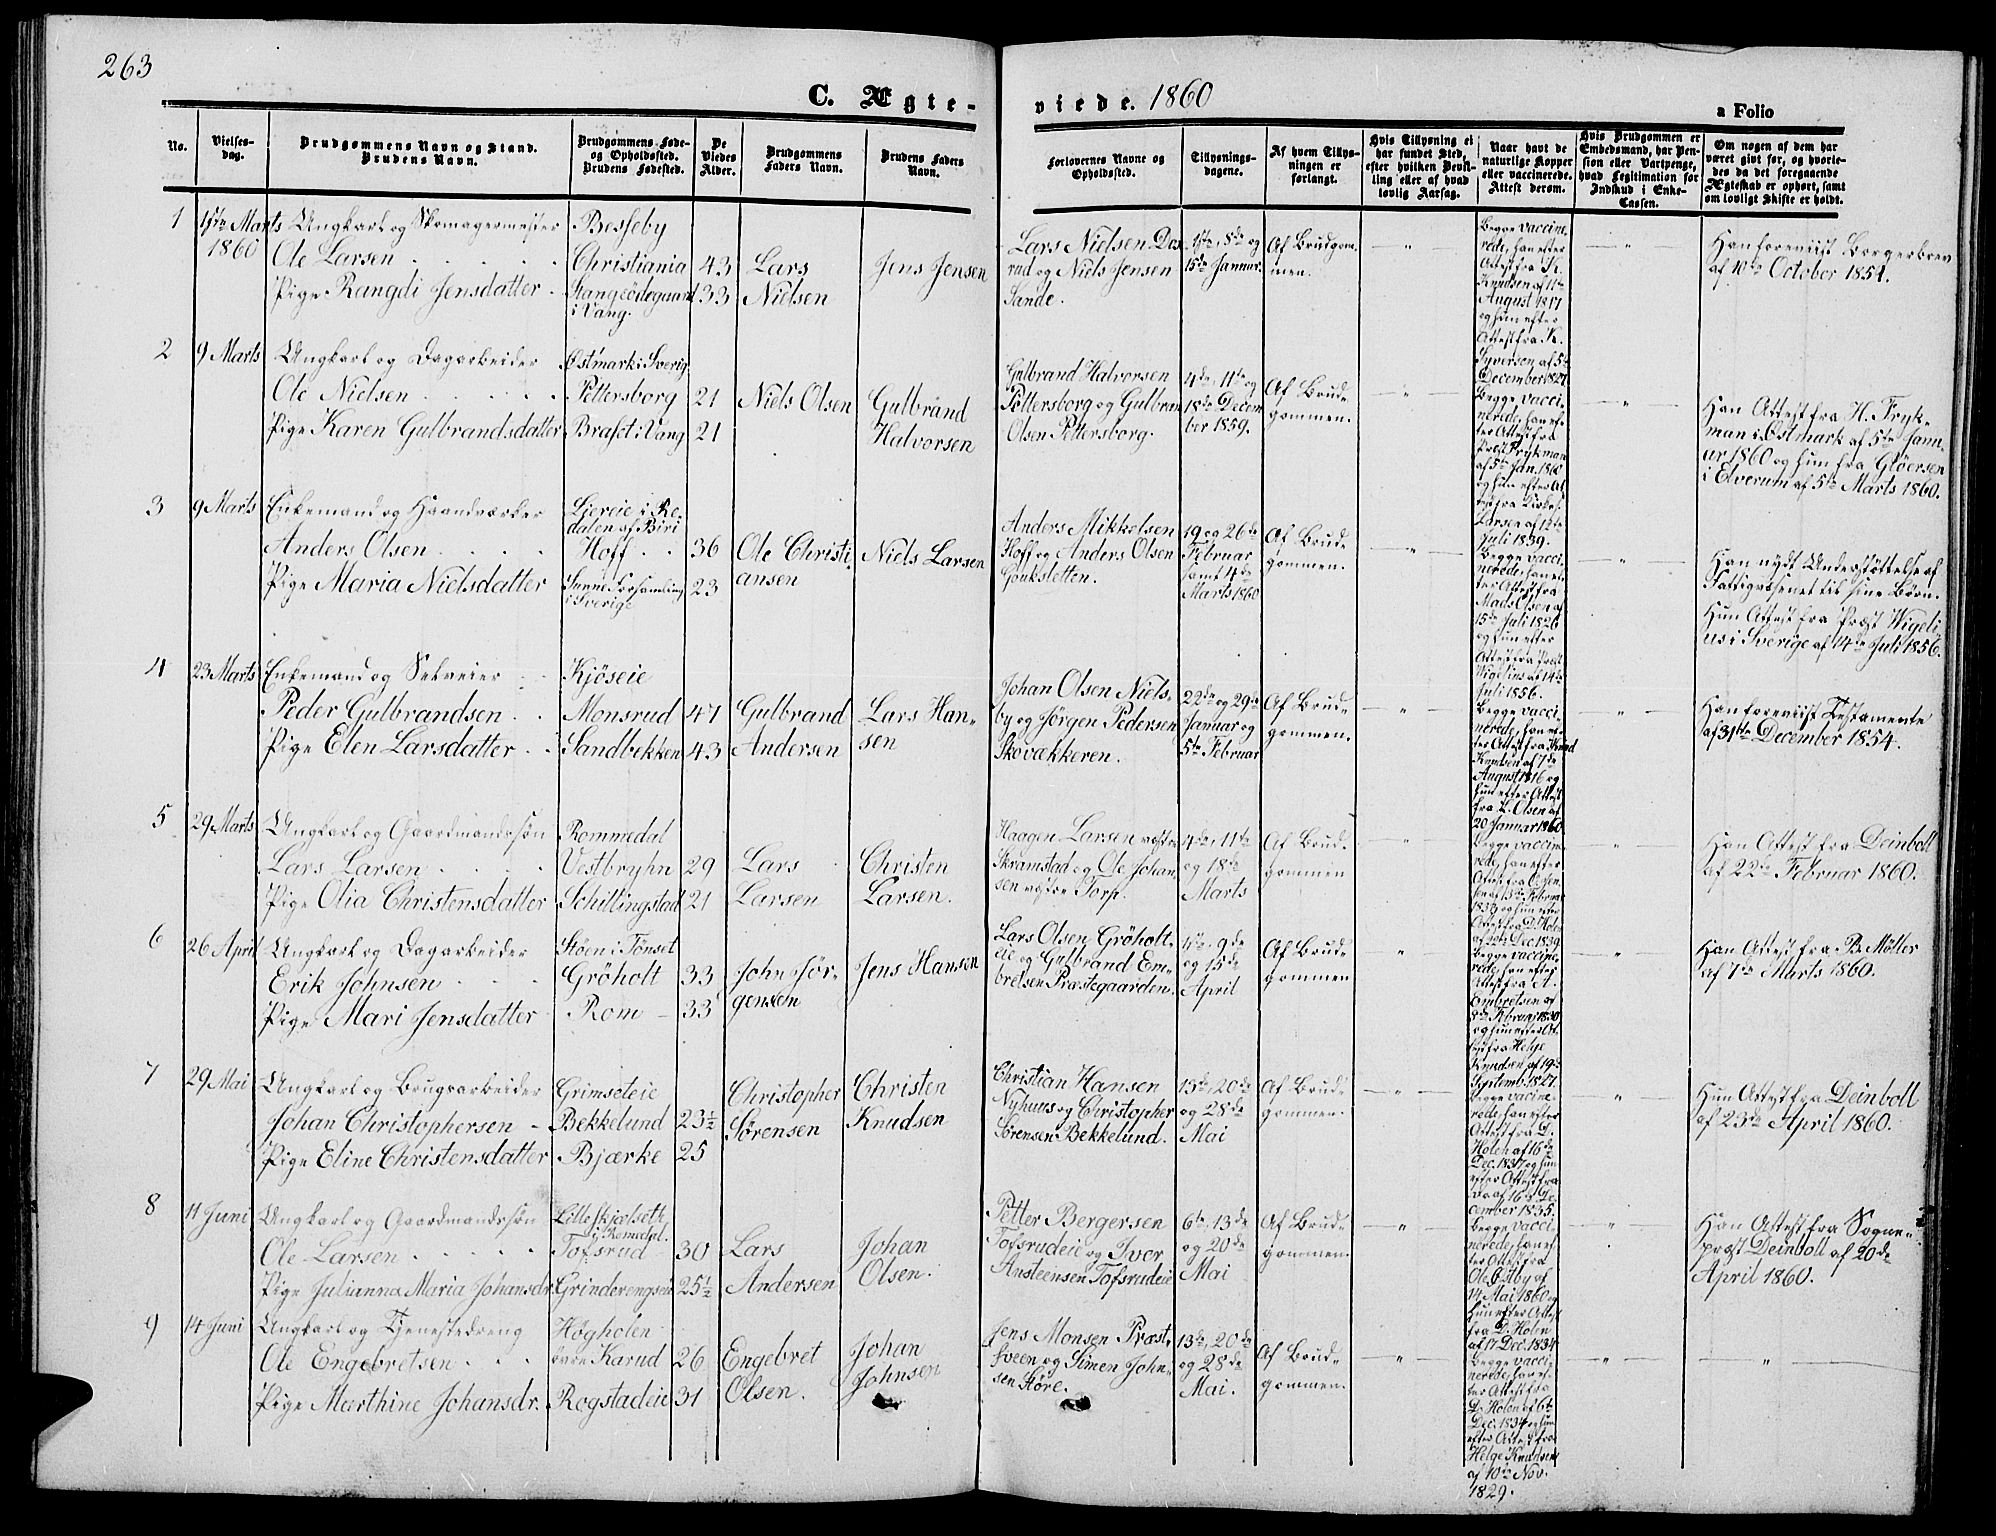 263
C. Ægte-
viede. 1860
a Folio
No.
Vielses-
dag.
Brudgommens Navn og Stand.
Brudens Navn.
Brudgommens Føde-
og Opholdssted.
Brudens Fødested.
De
Viedes
Alder.
Brudgommens
Faders Navn.
Brudens Faders
Navn.
Forlovernes Navne og
Opholdssted.
Tillysnings-
dagene.
Af hvem Tillys-
ningen er
forlangt.
Hvis Tillysning ei
har fundet Sted,
efter hvilken Bevil-
ling eller af hvad
lovlig Aarsag.
Naar havt de
naturlige Kopper
eller vaccinerede.
Attest derom.
Hvis Brudgommen er
Embedsmand, har Pen-
sion eller Vartpenge,
hvad Legitimation for
Indskud i Enke-
Cassen.
Om nogen af dem har
været gift før, og hvorle-
des da det foregaaende
Ægteskab er ophørt, samt
om lovligt Skifte er holdt.
1
Marts
1860
Ungkarl og Skomagermester
Ole Larsen
Pige Rangdi Jensdatter
Besseby
Christiania
Stangeödegaard
i Vang.
43
33
Lars
Nielsen
Jens Jensen
Lars Nielsen
rud og Niels Jensen
Sande.
1ste, 8de og
15de Januar.
Af Brudgom-
men.
Begge vaccine-
rede, han efter
Attest fra K.
Knudsen af 11te
August 1817
og hun efter
Attest fra K.
Syversen af 5te
December 1827.
Han foreviist Borgerbrev
af 10de October 1854.
2
9 Marts
Ungkarl og Dagarbeider
Ole Nielsen
Pige Karen Gulbrandsdatter
Østmark i Sverig
Pettersborg
Braset i Vang
21
21
Niels Olsen
Gulbrand
Halvorsen
Gulbrand Halvorsen
Pettersborg og Gulbran
Olsen Pettersborg.
4de, 11te og
18de Decem
ber 1859.
Af Brud-
gommen.
Begge vacci-
nerede, han ef-
ter Attest fra
Præst Frykman
af 5te Jan. 1860
og hun efter At-
test fra
Larsen af 12te
Juli 1839.
Han Attest fra H. Fryk-
man i Østmark af 5te Janu-
ar 1860 og hun fra Glöersen
i Elverum af 5te Marts 1860.
3
9 Marts
Enkemand og Haandværker
Anders Olsen
Pige Maria Nielsdatter
Ljereie i Re-
dalen af Biri
Hoff
Sunne Forsamling
i Sverige
36
23
Ole Christi-
ansen
Niels Larsen
Anders Mikkelsen
Hoff og Anders Olsen
Goukstetten.
19 og 26de
Februar
samt 4de
Marts 1860
Af Brud-
gommen.
Begge vacci-
nerede, han ef-
ter Attest fra
Mads Olsen af
15de Juli 1826
og hun efter
Attest fra Præst
Wigelius af 14de
Juli 1856.
Han nydt Understöttelse af
Fattigvæsenet til sine Börn.
Hun Attest fra Præst Wigeli-
us i Sverige af 14de Juli 1856.
4
23 Marts
Enkemand og Selveier
Peder Gulbrandsen
Pige Elen Larsdatter
Kjöseie
Monsrud
Sandbekken
47
43
Gulbrand
Andersen
Lars Han-
sen
Johan Olsen Niels-
by og Jörgen Pedersen
Skovækkeren.
22de og 29de
Januar og
5te Februar
Af Brud-
gommen.
Begge vacci-
nerede, han ef-
ter Attest fra Knud
Knudsen af 7de
August 1816 og
hun efter Attest
fra L. Olsen af
20 Januar 1860.
Han foreviist Testamente
af 31te December 1854.
5
29 Marts
Ungkarl og Gaardmandssön
Lars Larsen
Pige Olia Christensdatter
Rommedal
Vestbryhn
Schillingstad
29
21
Lars
Larsen
Christen
Larsen.
Haagen Larsen vestre
Skramstad og Ole Johan-
sen vestre Torp.
4de, 11te
og 18de
Marts
Af Brud-
gommen
Begge vaccine-
rede, han efter
1833 og hun efter
Attest fra D. Holen
af Dec. 1839.
Han Attest fra Deinboll
af 22de Februar 1860.
6
26 April
Ungkarl og Dagarbeider
Erik Johnsen
Pige Mari Jensdatter
Stöen i Tönset
Gröholt
Rom
33
33
John Jör-
gensen
Jens Hansen
Lars Olsen Gröholt-
eie og Gulbrand Em-
bretsen Præstegaarden.
9de
og 15de
April
Af Brud-
gommen
Begge vaccine-
rede, han efter
Attest fra A.
Embretsen af
8de Februar 1830
og hun efter At-
test fra Helge
Knudsen af 19de
Septemb. 1827.
Han Attest fra B. Möller
af 7de Marts 1860.
7
29 Mai
Ungkarl og Brugsarbeider
Johan Christophersen
Pige Eline Christensdatter
Grimseteie
Bekkelund
Bjærke
23½
25
Christopher
Sørensen
Christen
Knudsen
Christian Hansen
Nyhuus og Christopher
Sörensen Bekkelund.
13de, 20de
og 28de
Mai
Af Brud-
gommen.
Begge vaccine-
rede, han efter
Attest fra D.
Holen af 16de
Dec. 1837 og hun
efter Attest fra
Do af 16de De-
cember 1835.
Hun Attest fra Deinboll
af 23de April 1860.
8
11 Juni
Ungkarl og Gaardmandssön
Ole Larsen
Pige Julianna Maria Johansdr
Lilleskjælseth
i Romedal.
Tofsrud
Grinderengseie
30
25½
Lars
Andersen
Johan
Olsen.
Petter Bergersen
Tofsrudeie og Iver
Ansteensen Tofsrudeie
6te, 13de
og 20de
Mai
Af Brud-
gommen.
Begge vacci-
nerede, han ef-
ter Attest fra
Ole Östby af
14 Mai 1860 og
hun efter Attest
fra D. Holen
af 17 Dec. 1834.
Han Attest fra Sogne-
præst Deinboll af 20de
April 1860.
9
14 Juni
Ungkarl og Tjenestedreng
Ole Engebretsen
Pige Marthine Johansdr.
Högholen
övre Karud
Rogstadeie
26
31
Engebret
Olsen.
Johan
Johnsen
Jens Monsen Præst-
sveen og Simen John-
sen Störe.
13de, 20de
og 28de
Mai.
Af Brud-
gommen.
Begge vacci-
nerede, han ef-
ter Attest fra
D. Holen af 6te
Dec. 1834 og hun
efter Attest fra
Helge Knudsen
af 10de Nov.
1829.